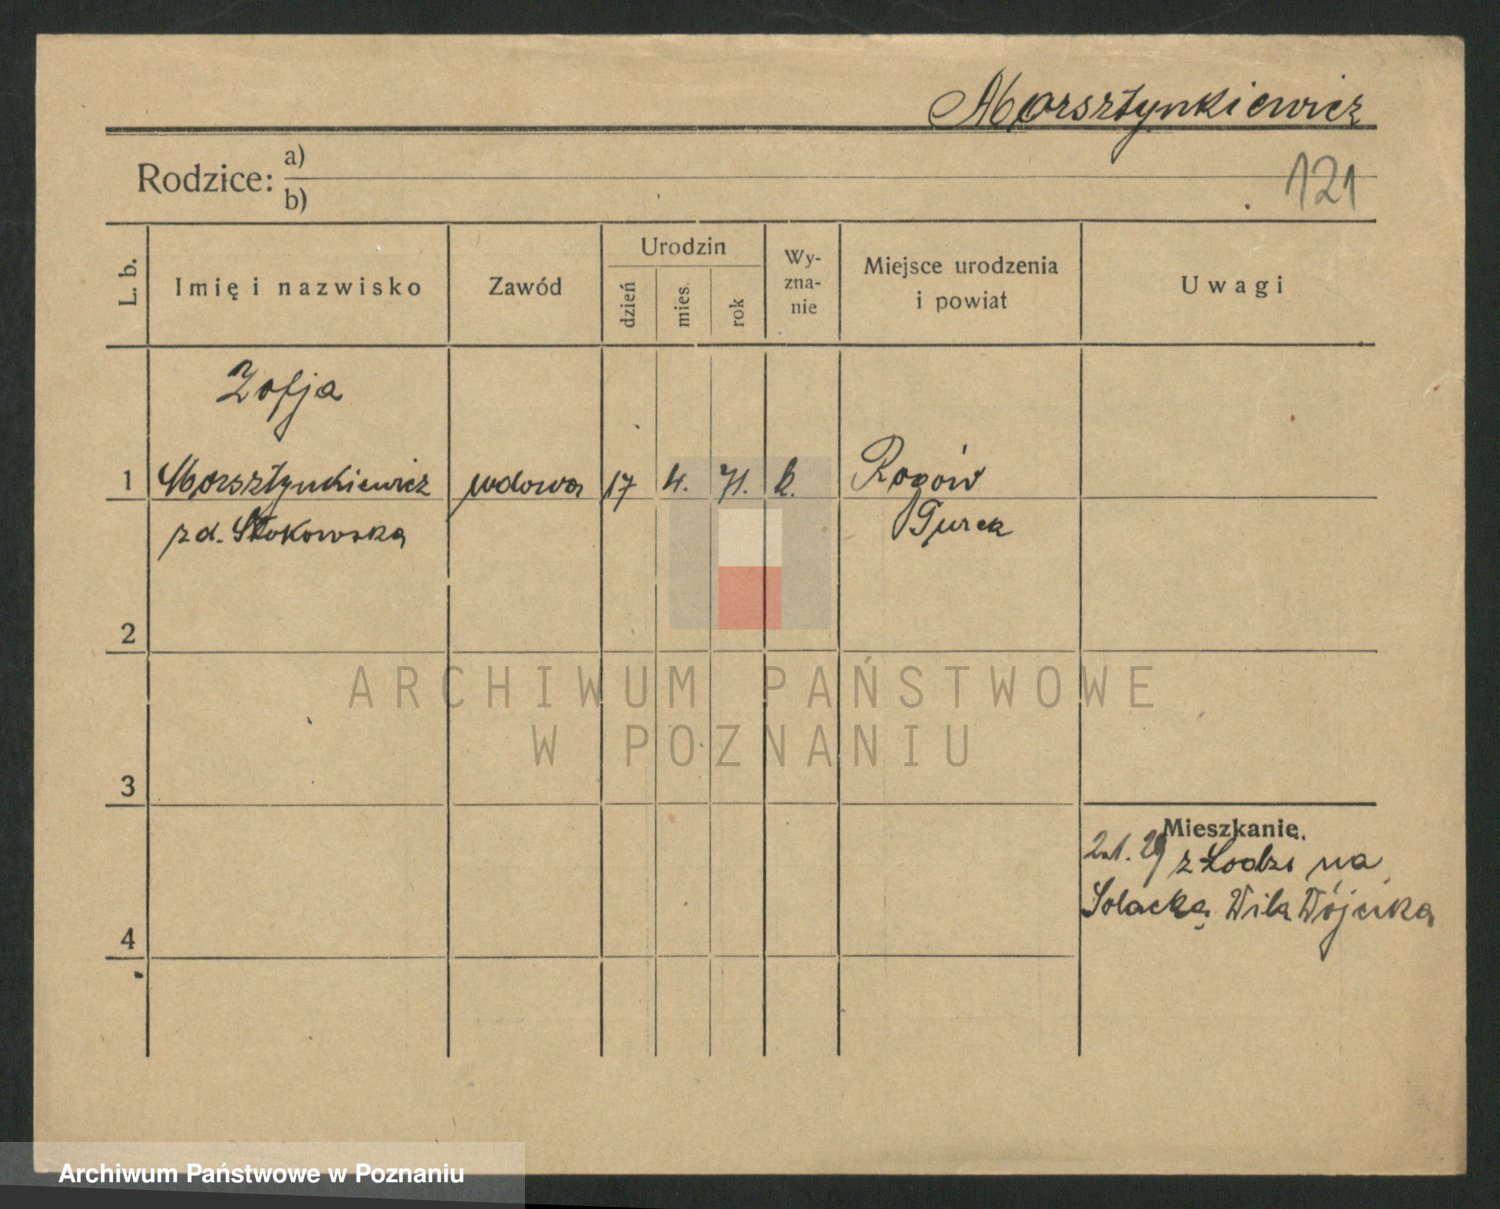 Morsztynkiewicz
Rodzice: a)
b)
121
L. b.
Imię i nazwisko
Zawód
Urodzin
dzień
mies.
rok
Wy-
zna-
nie
Miejsce urodzenia
i powiat
Uwagi
Zofja
1 Morsztynkiewicz wdowa 17 4. 71. k.
z d. Stokowska Turek
2
ARCHIWUM PAŃSTWOWE
W POZNANIU
3
Mieszkanie.
2.1.29 z Łodzi na
Sołacką, Wila Wójcika
4
Archiwum Państwowe w Poznaniu